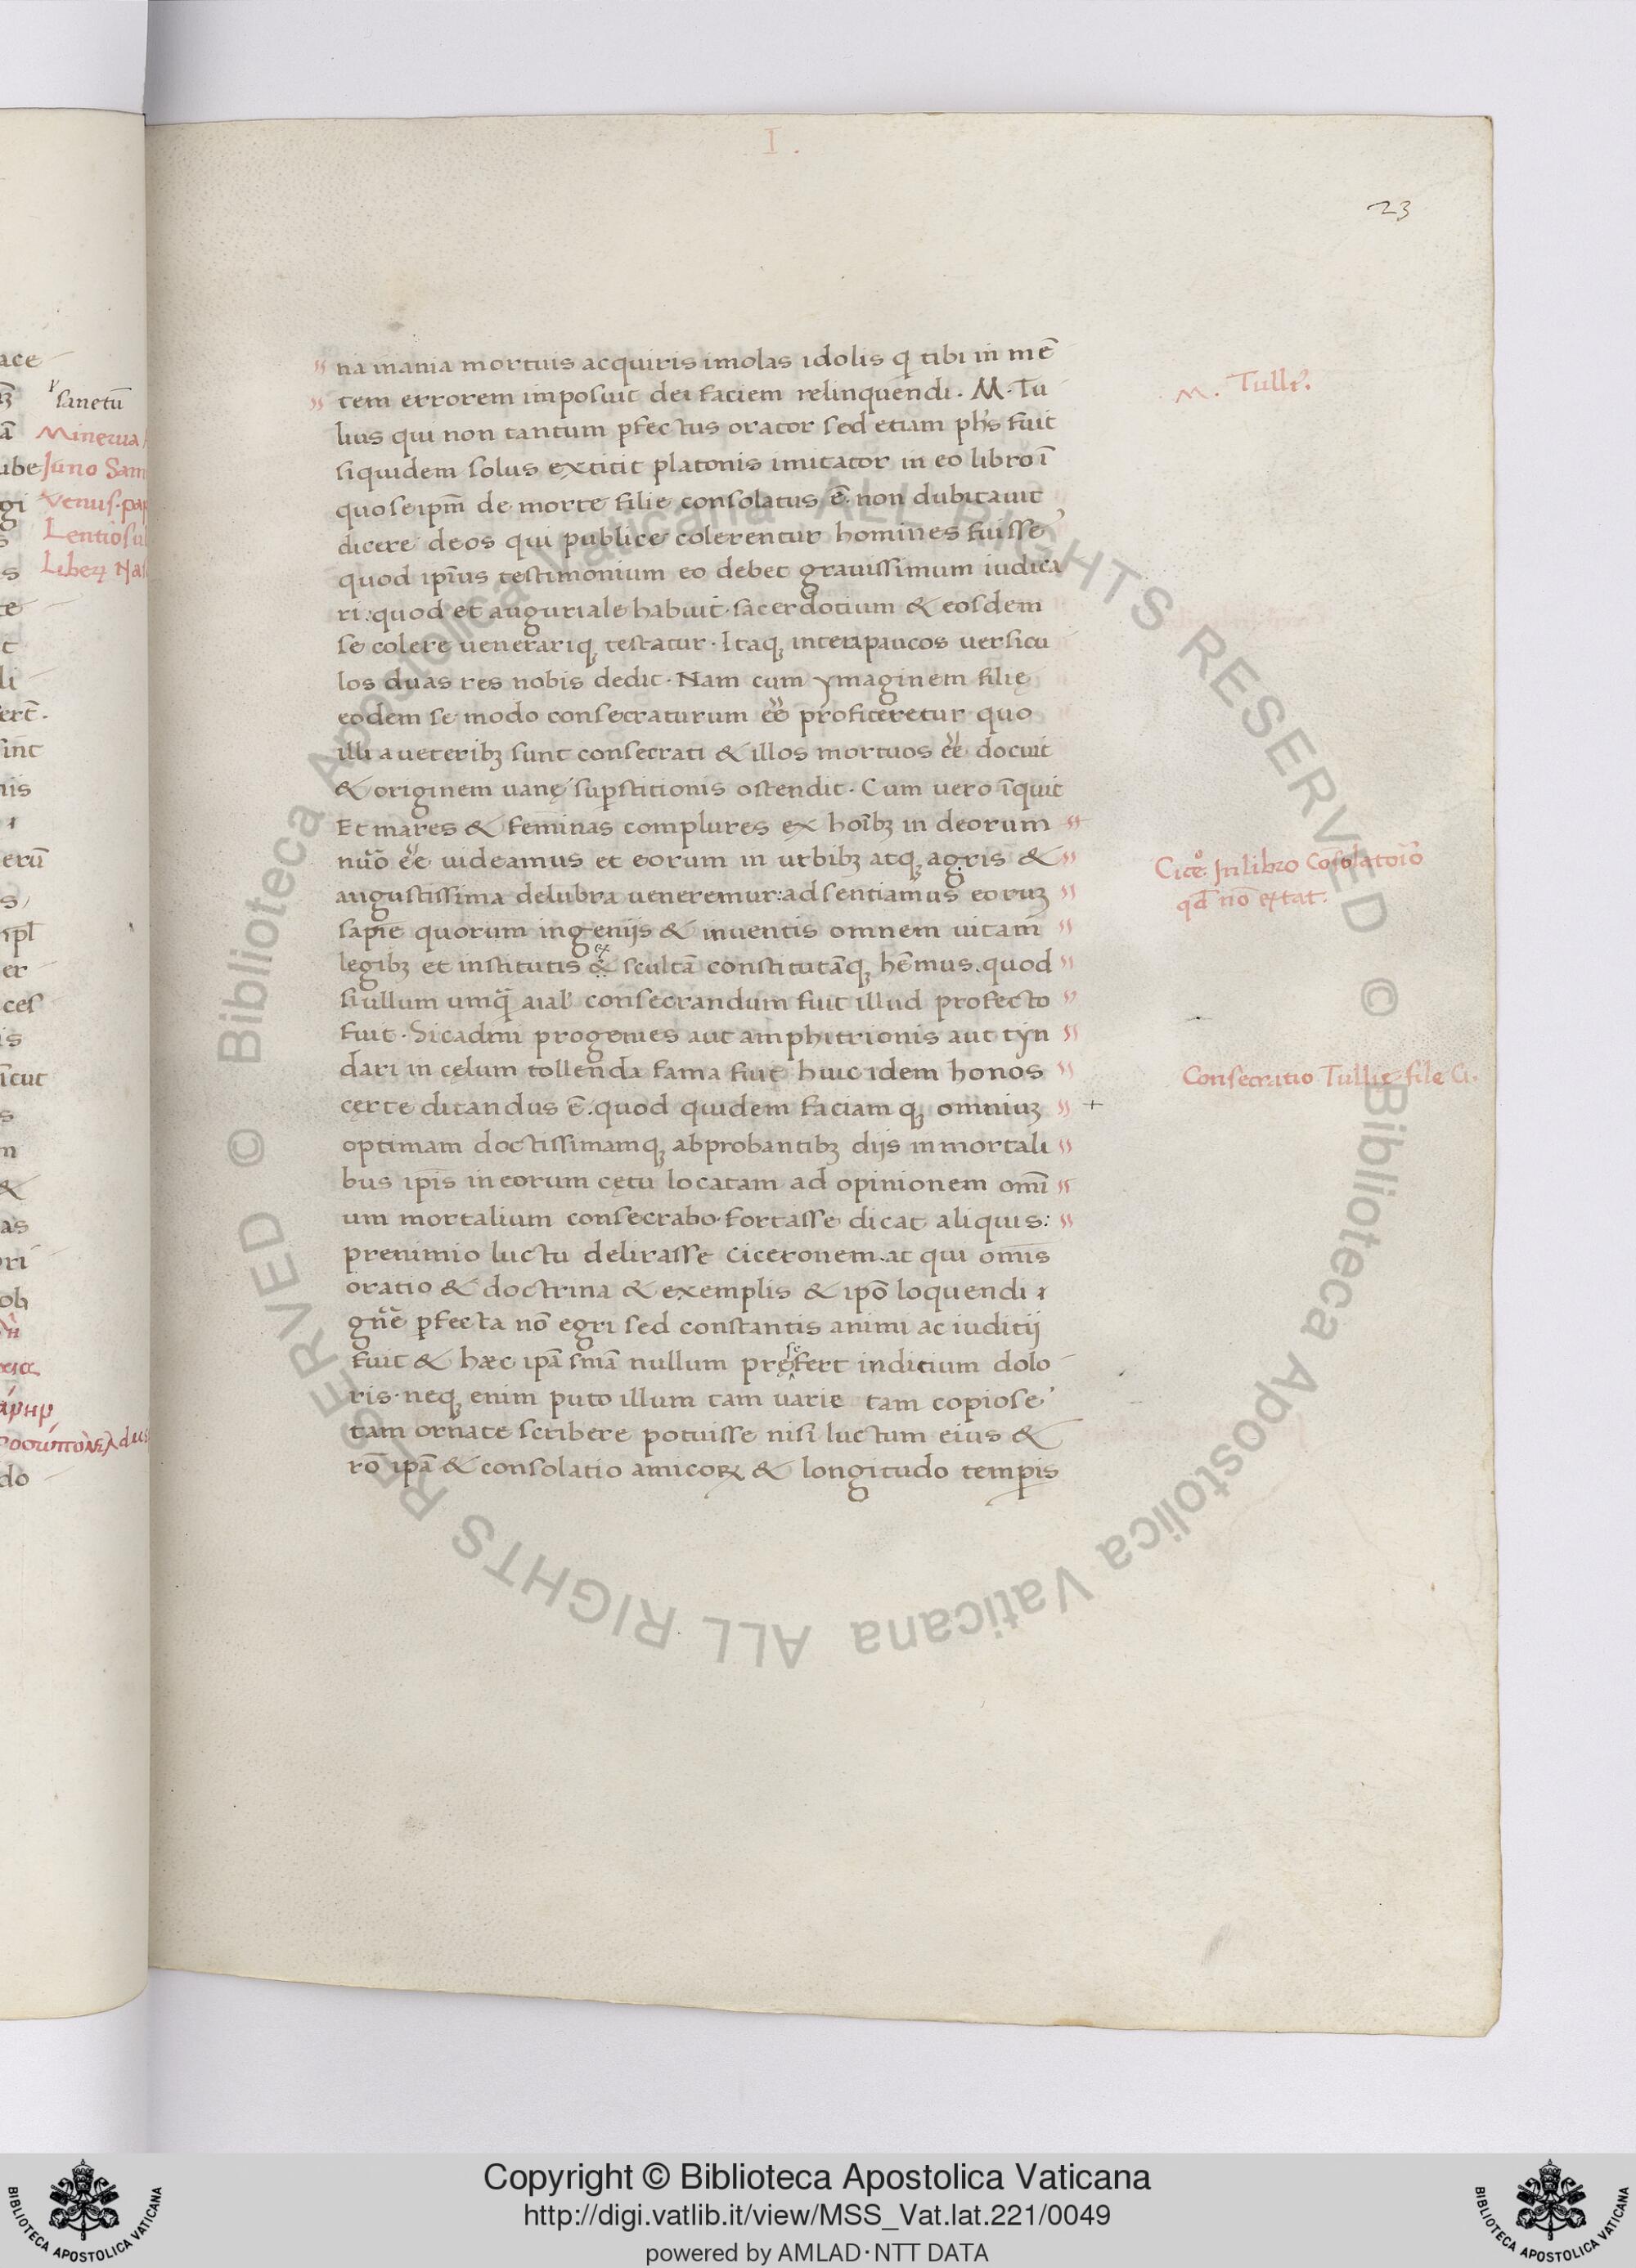 I.
23
na mania mortuis acquiris imolas idolis q tibi in mē
tem errorem imposuit dei faciem relinquendi. M. Tu
lius qui non tantum pfectus orator sed etiam phs fuit
siquidem solus extitit platonis imitator in eo libro ī
quo seipm̄ de morte filie consolatus ē. non dubitauit
dicere deos qui publice colerentur homines fuisse
quod ipīus testimonium eo debet grauissimum iudica
ri: quod et auguriale habuit sacerdotium & eosdem
se colere uenerariq; testatur. Itaq; intera paucos uersicu
los duas res nobis dedit. Nam cum ymaginem filię
eodem se modo consecraturum eē profiteretur quo
illi a ueteribꝫ sunt consecrati & illos mortuos eē docuit
& originem uanę supstitionis ostendit. Cum uero īquit
Et mares & feminas complures ex hoībꝫ in deorum
nūo eē uideamus et eorum in urbibꝫ atq; agris &
augustissima delubra ueneremur: adsentiamus eoruꝫ
sapiē quorum ingenijs & inuentis omnem uitam
legibꝫ et institutis & ex scultā constitutāq; hēmus. quod
si ullum umq̄ aial consecrandum fuit illud profecto
fuit. Si cadmi progenies aut amphitrionis aut tyn
dari in cęlum tollenda fama fuit huic idem honos
cęrte dicandus ē. quod quidem faciam q; omniuꝫ
optimam doctissimamq; abprobantibꝫ dijs inmortali
bus ipīs in eorum cętu locatam ad opinionem omī
um mortalium consecrabo. fortasse dicat aliquis:
prenimio luctu delirasse ciceronem. at qui omīs
oratio & doctrina & exemplis & ipō loquendi
gn̄e pfecta nō egri sed constantis animi ac iuditij
fuit & hæc ipā sm̄a nullum pręsefert inditium dolo
ris. neq; enim puto illum tam uarie tam copiose
tam ornate scribere potuisse nisi luctum eius &
rō ipā & consolatio amicoꝝ & longitudo tempis
M. Tulli⁹.
Cicꝰ. In libro Cōsolatoīo
qđ nō extat.
Consecratio Tullię filę Ci.
sanctū
Minerua
Juno Sam
Venus. pap
Lentiosu
Copyright © Biblioteca Apostolica Vaticana
http://digi.vatlib.it/view/MSS_Vat.lat.221/0049
powered by AMLAD · NTT DATA
BIBLIOTECA APOSTOLICA VATICANA
BIBLIOTECA APOSTOLICA VATICANA
© Biblioteca Apostolica Vaticana ALL RIGHTS RESERVED © Biblioteca Apostolica Vaticana ALL RIGHTS RESERVED